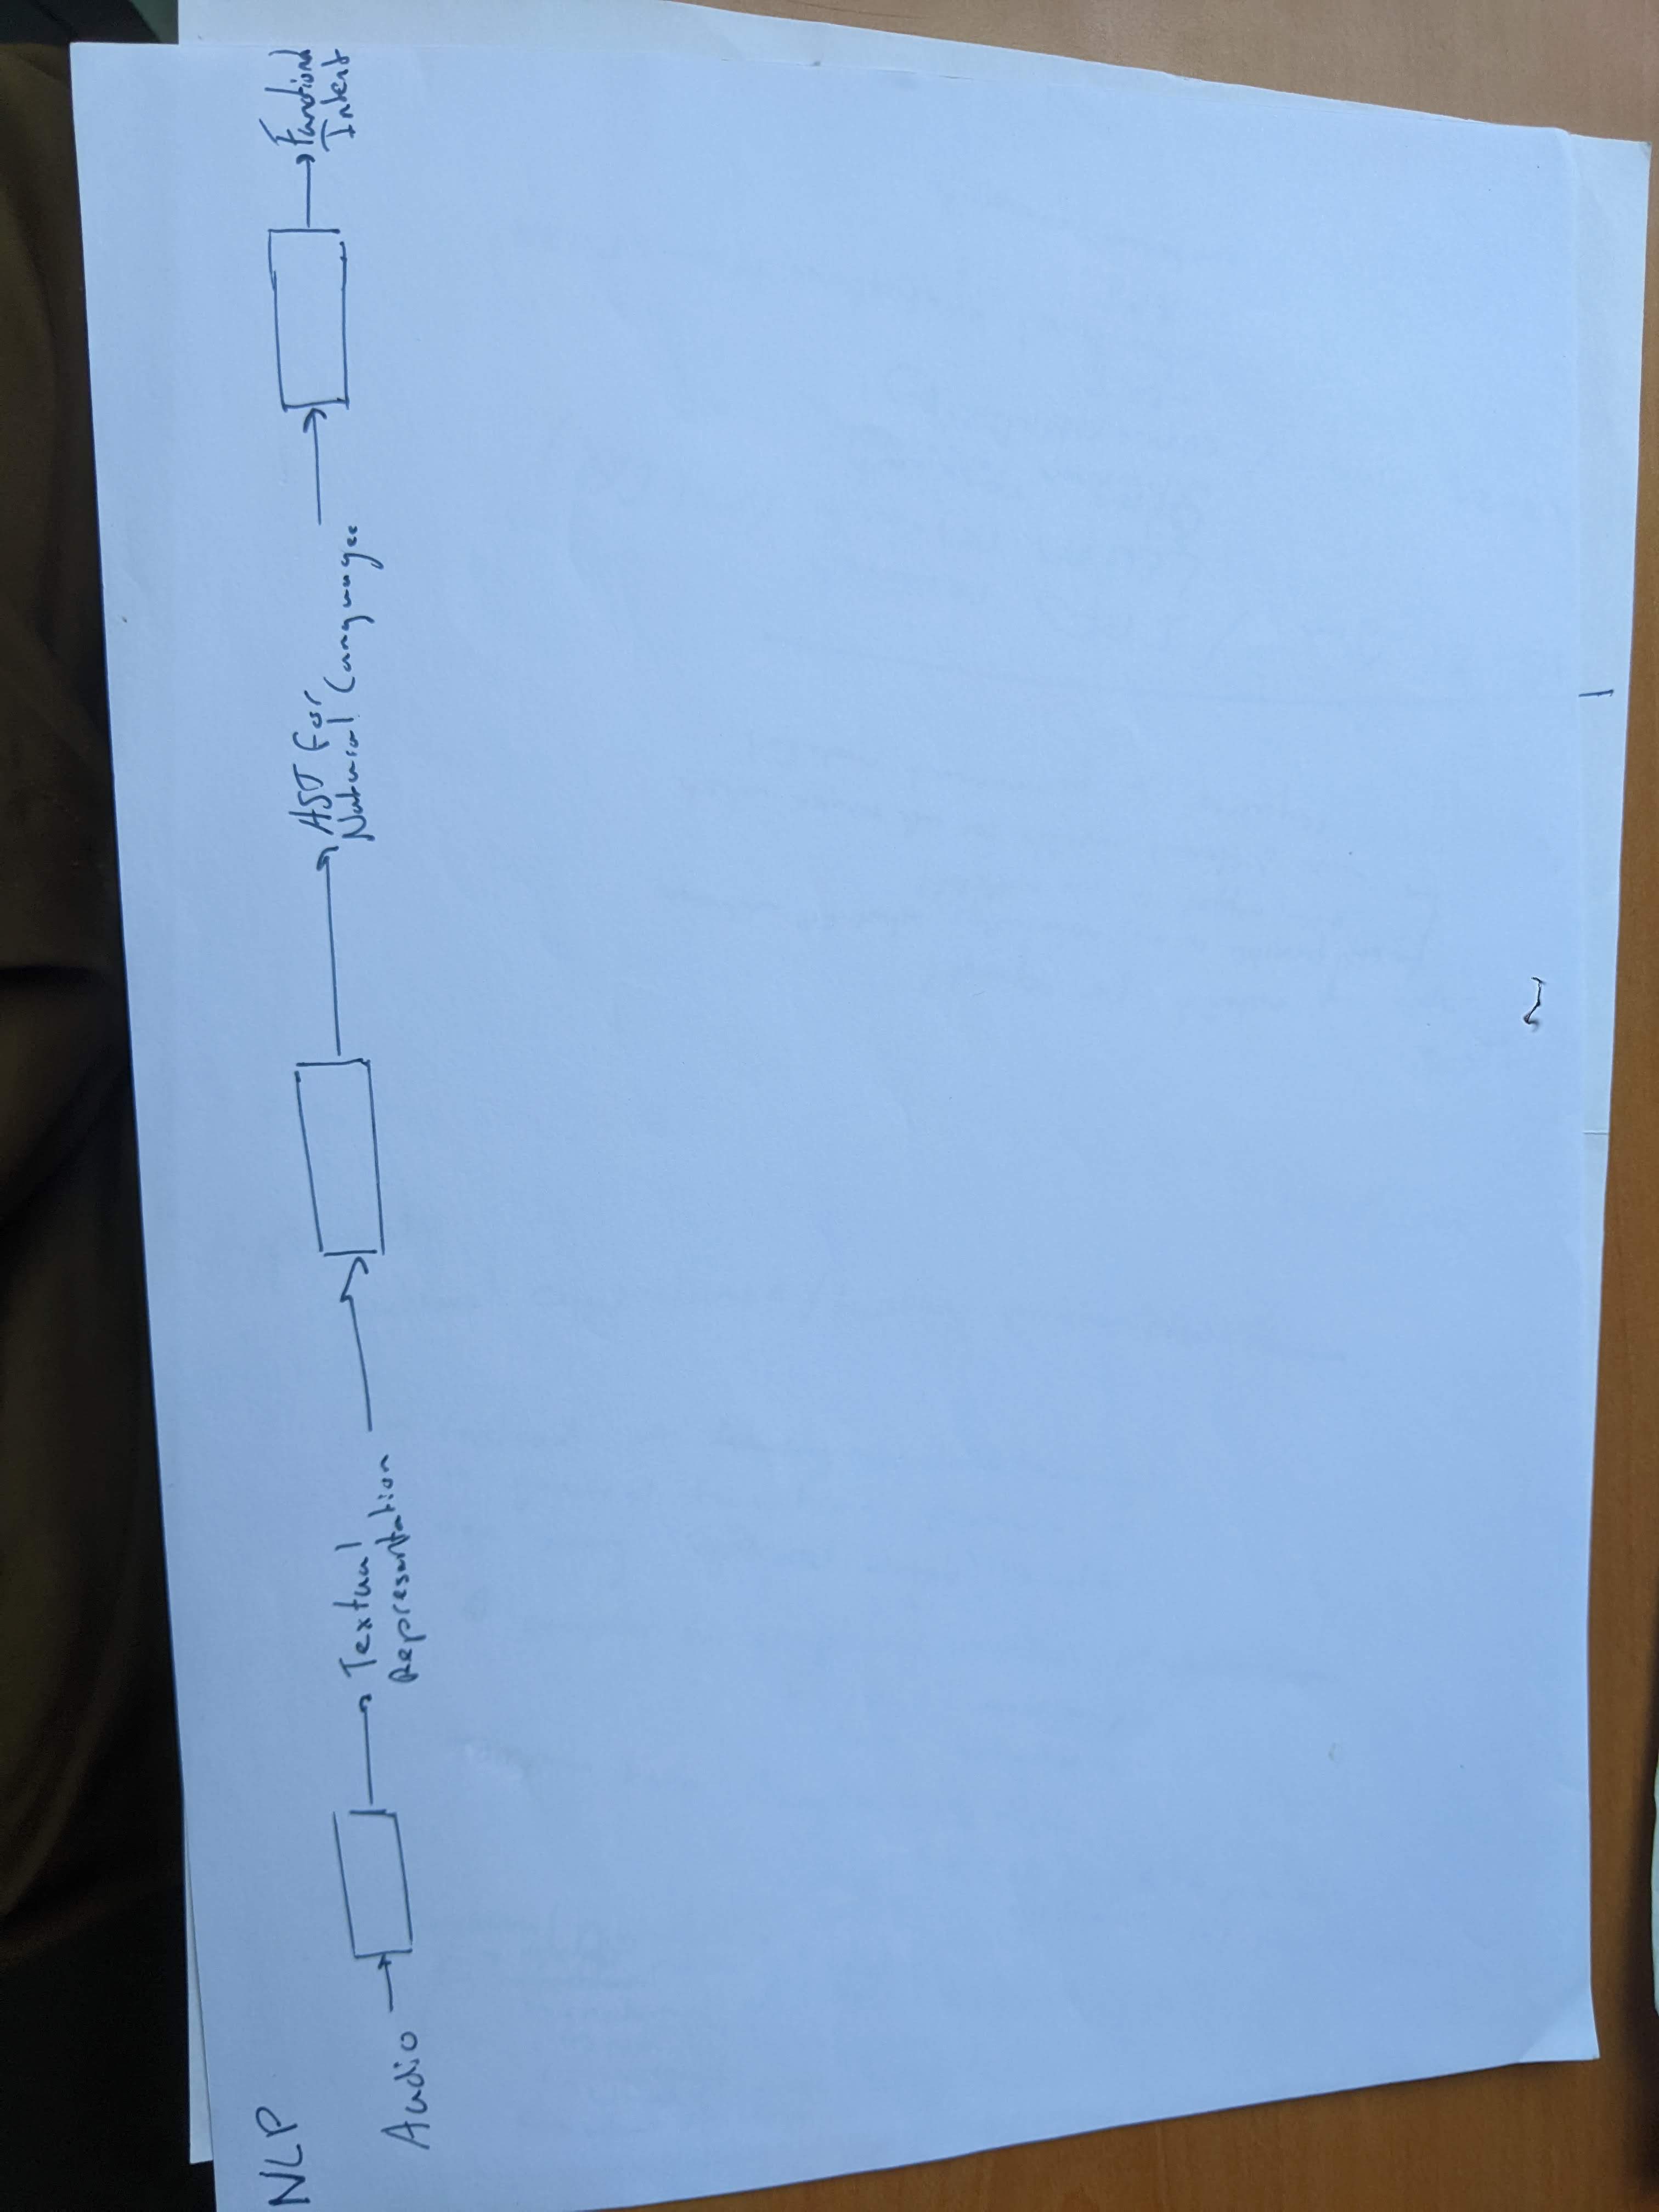 NLP
Audio
Textual
Representation
AST for
Natural Languages
Functional
Intent